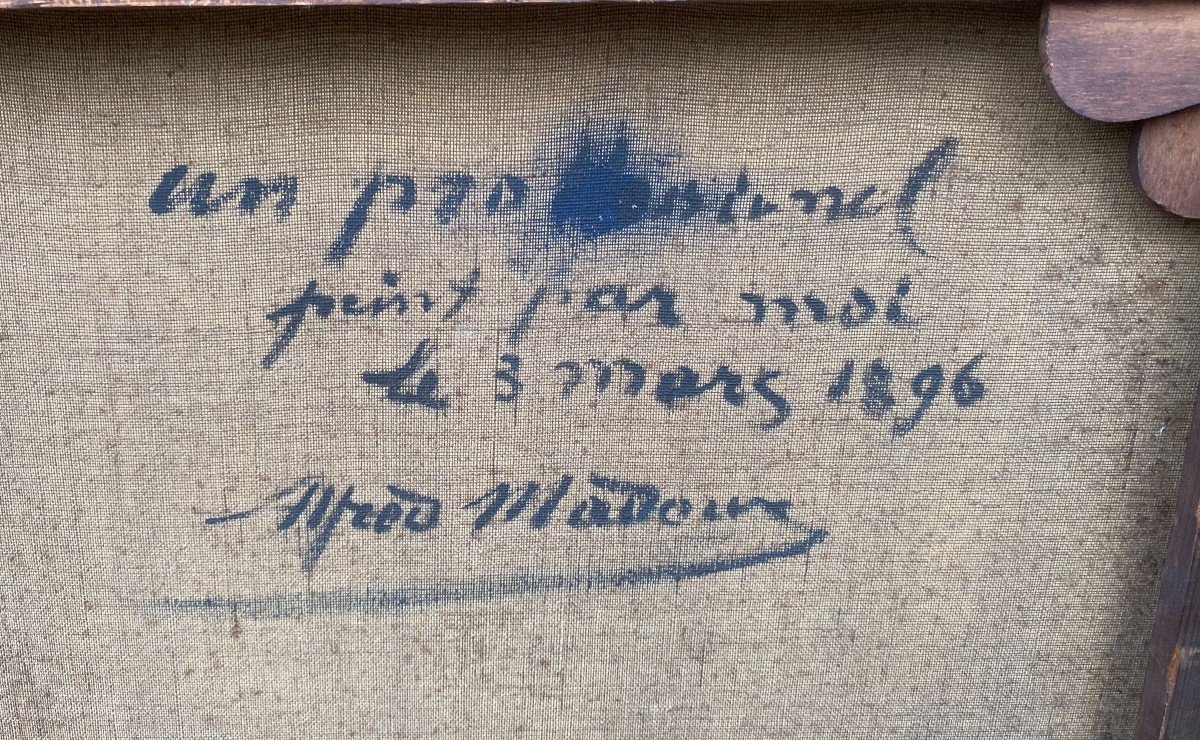 un
peint par moi
le 3 mars 1896
Alfred Madoux